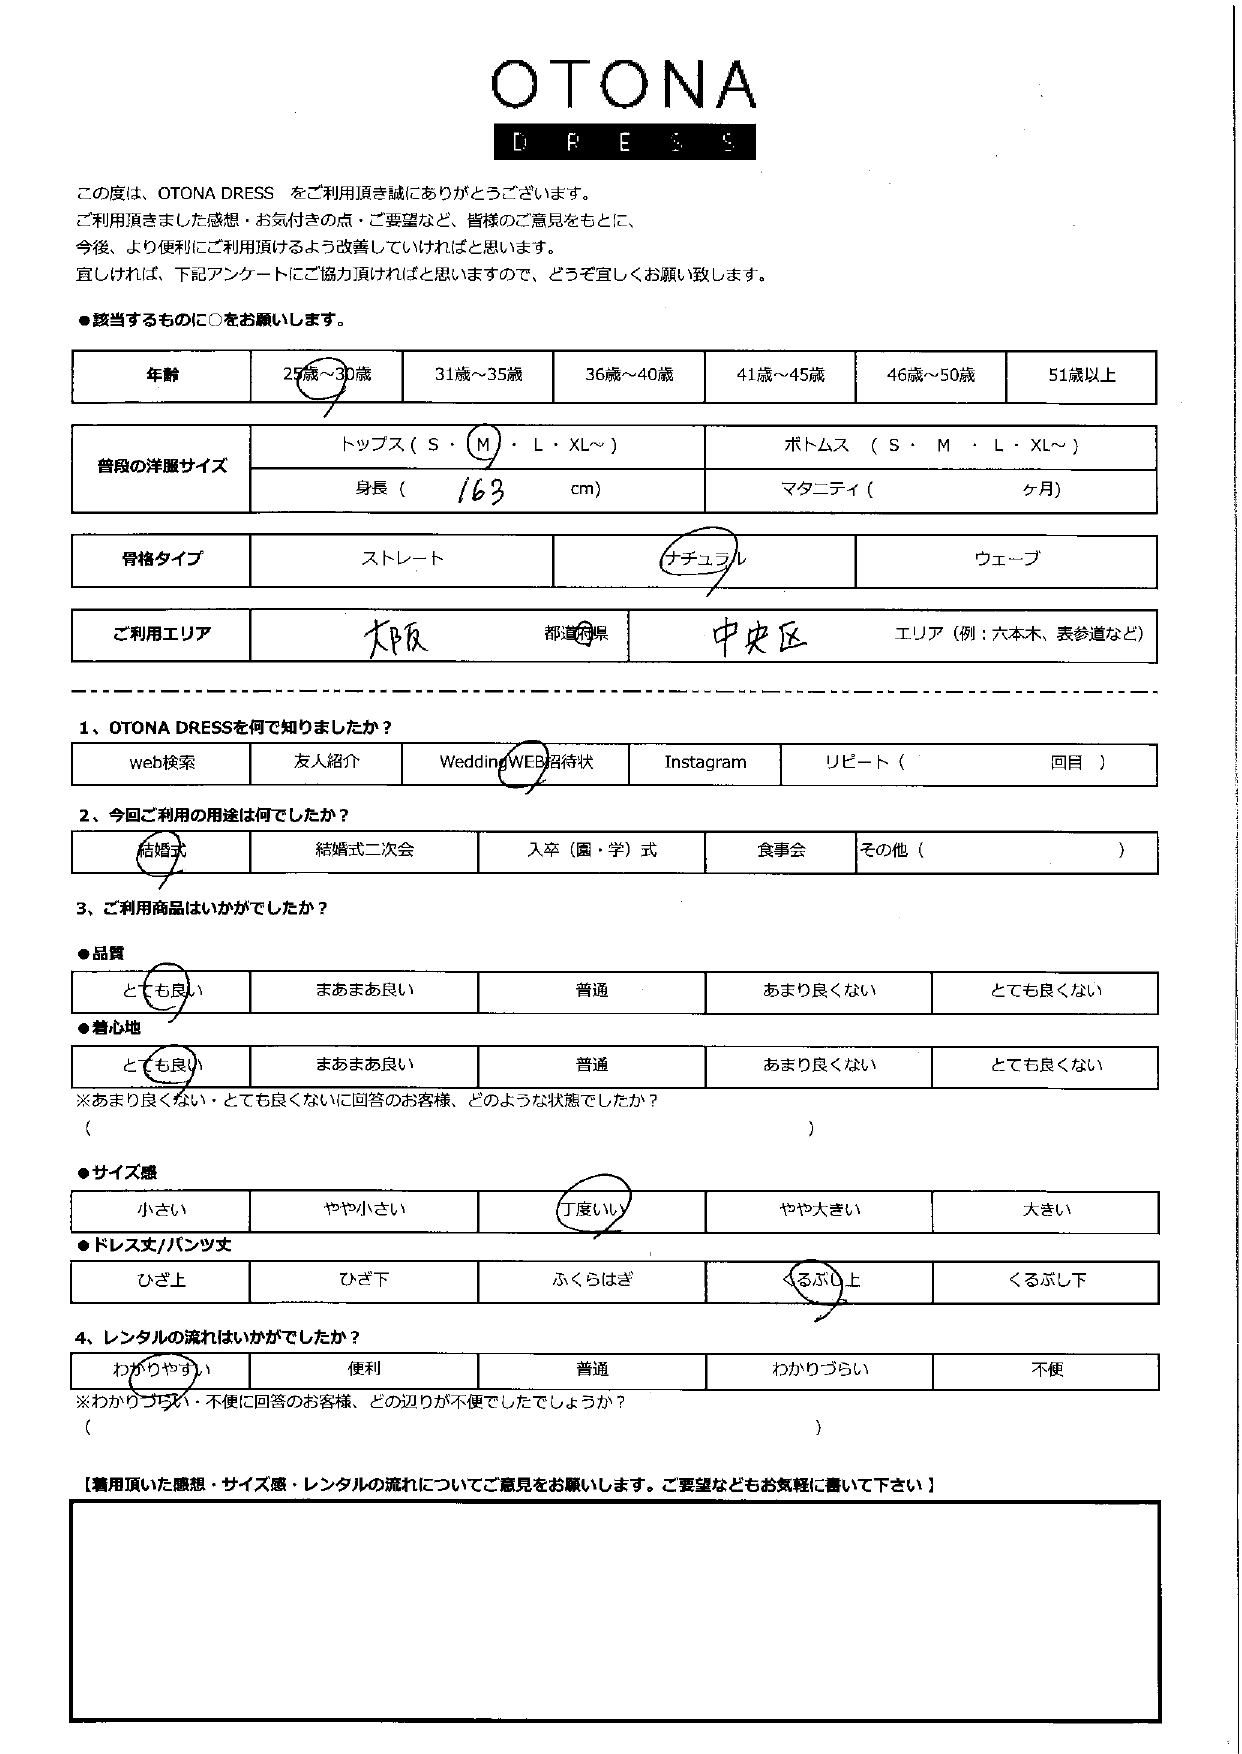 OTONA
DRESS
この度は、OTONA DRESS をご利用頂き誠にありがとうございます。
ご利用頂きました感想・お気付きの点・ご要望など、皆様のご意見をもとに、
今後、より便利にご利用頂けるよう改善していければと思います。
宜しければ、下記アンケートにご協力頂ければと思いますので、どうぞ宜しくお願い致します。
●該当するものに○をお願いします。
年齢 25歳～30歳 31歳～35歳 36歳～40歳 41歳～45歳 46歳～50歳 51歳以上
普段の洋服サイズ トップス ( S ・ M ・ L ・ XL～ ) ボトムス ( S ・ M ・ L ・ XL～ )
身長 ( 163 cm) マタニティ ( ヶ月)
骨格タイプ ストレート ナチュラル ウェーブ
ご利用エリア 大阪 都道府県 中央区 エリア（例：六本木、表参道など）
1、OTONA DRESSを何で知りましたか？
web検索 友人紹介 WeddingWEB招待状 Instagram リピート（ 回目 ）
2、今回ご利用の用途は何でしたか？
結婚式 結婚式二次会 入卒（園・学）式 食事会 その他（ ）
3、ご利用商品はいかがでしたか？
●品質
とても良い まあまあ良い 普通 あまり良くない とても良くない
●着心地
とても良い まあまあ良い 普通 あまり良くない とても良くない
※あまり良くない・とても良くないに回答のお客様、どのような状態でしたか？
（ ）
●サイズ感
小さい やや小さい 丁度いい やや大きい 大きい
●ドレス丈/パンツ丈
ひざ上 ひざ下 ふくらはぎ くるぶし上 くるぶし下
4、レンタルの流れはいかがでしたか？
わかりやすい 便利 普通 わかりづらい 不便
※わかりづらい・不便に回答のお客様、どの辺りが不便でしたでしょうか？
（ ）
【着用頂いた感想・サイズ感・レンタルの流れについてご意見をお願いします。ご要望などもお気軽に書いて下さい】